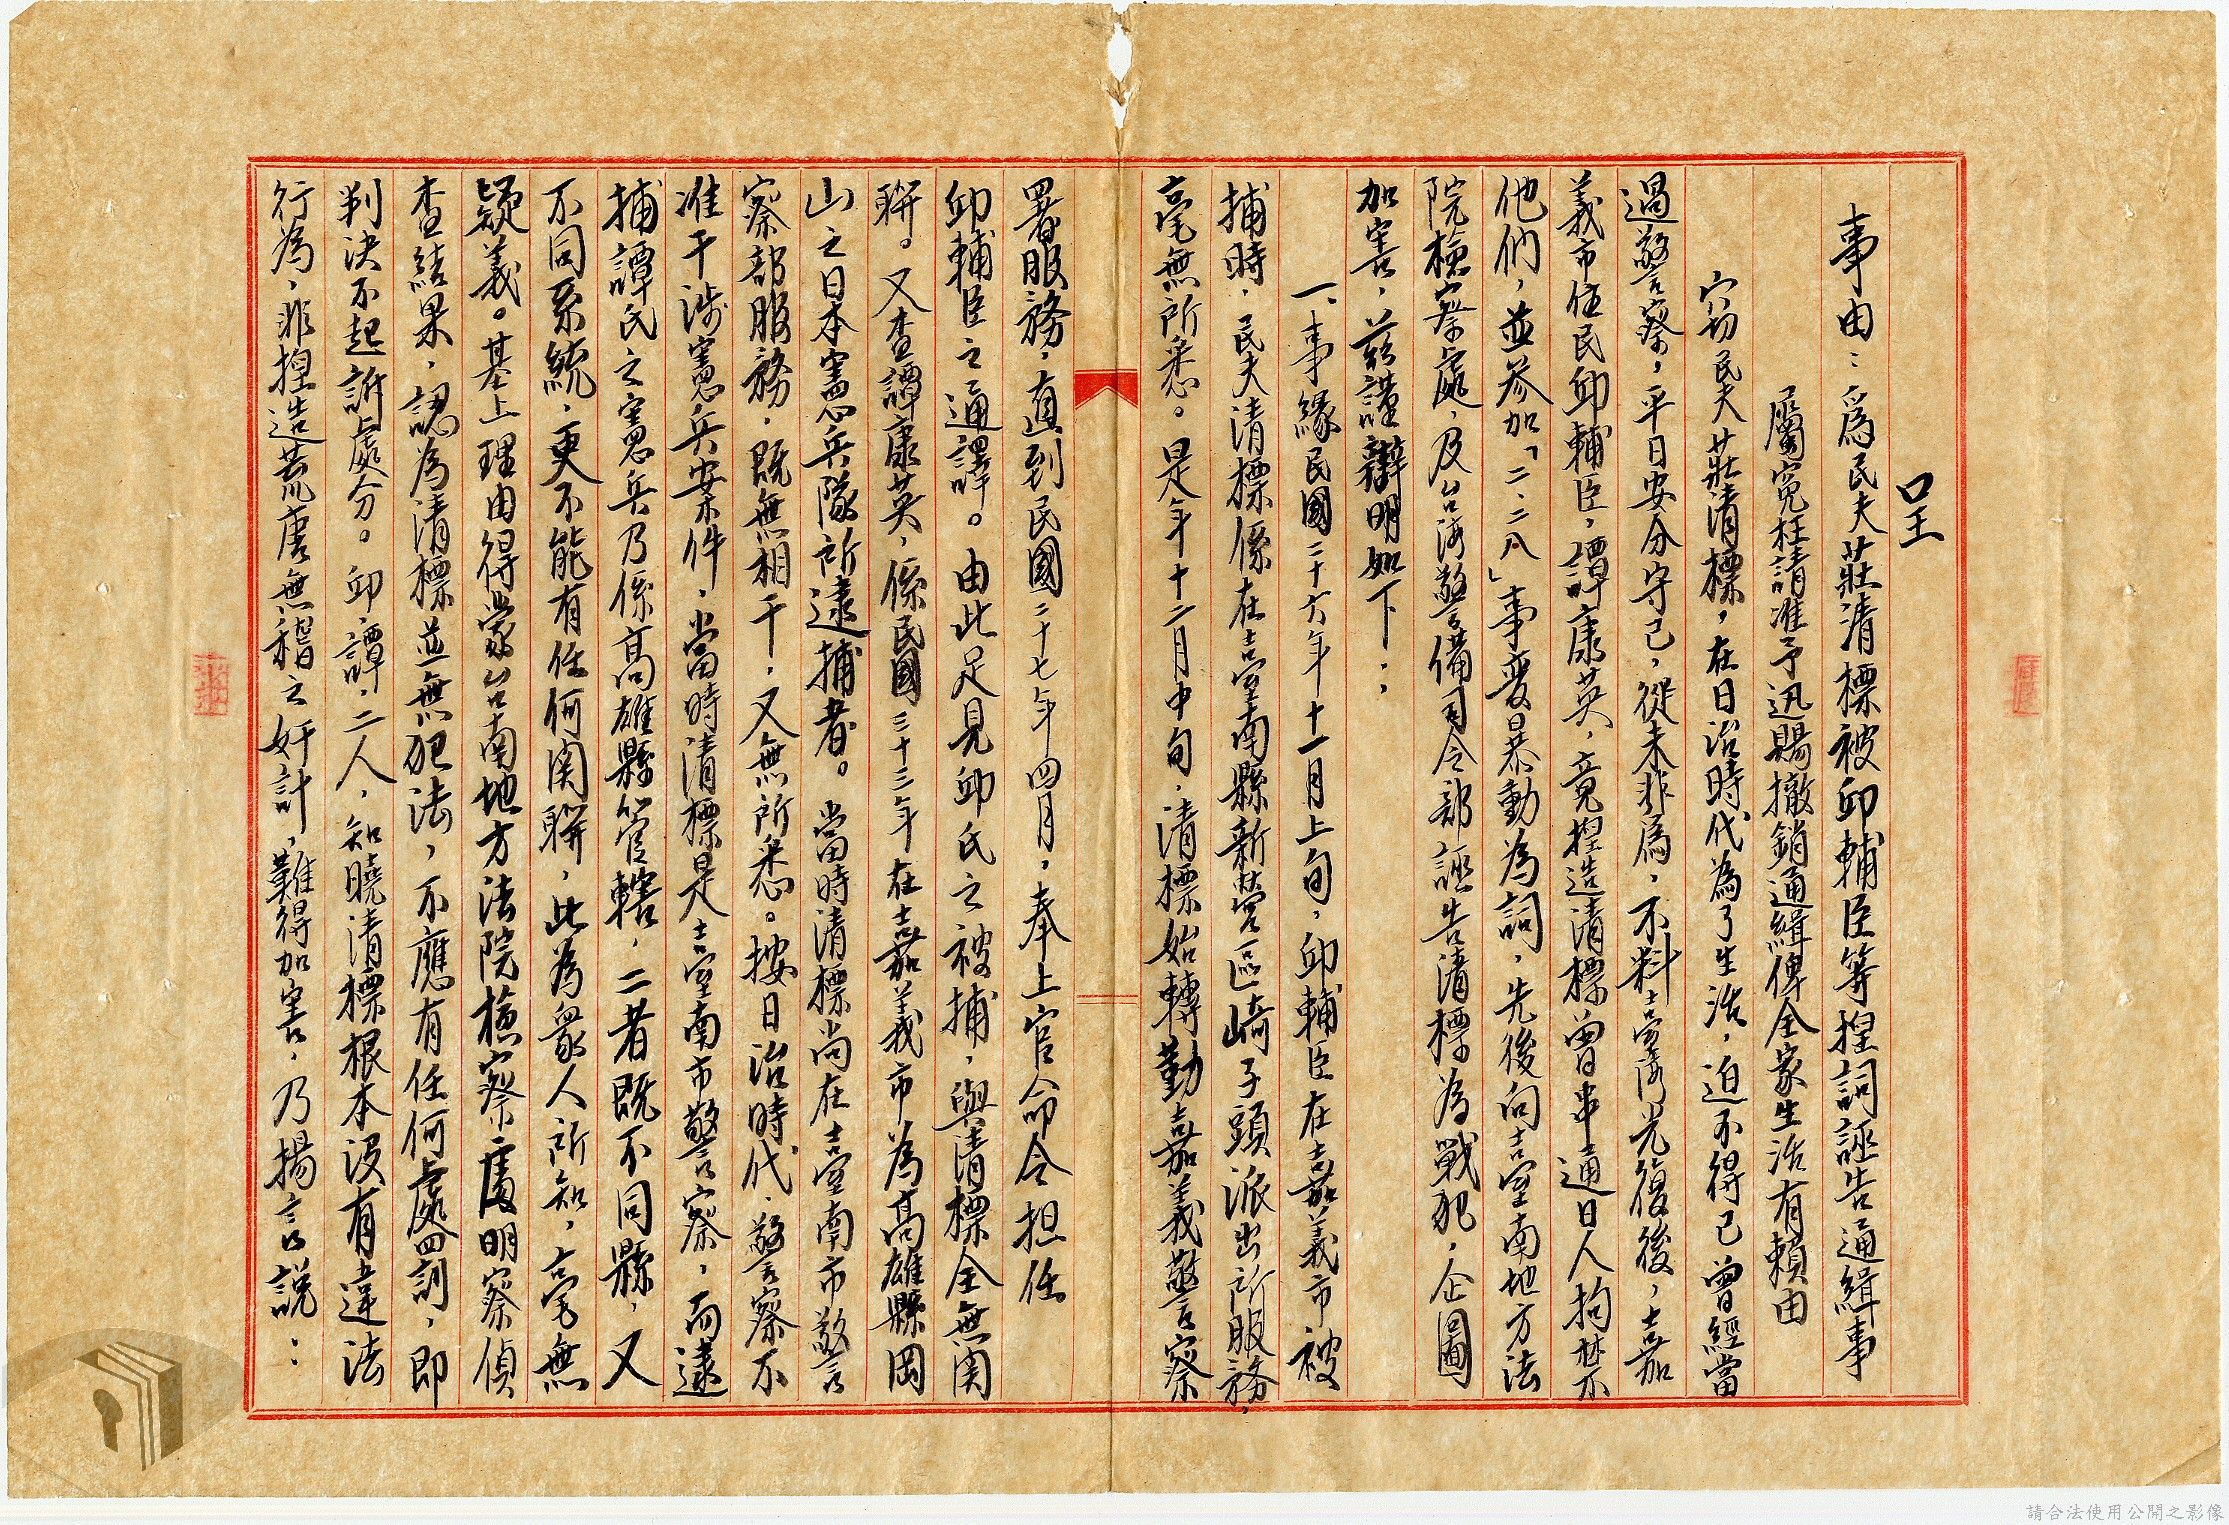 呈
事由：為民夫莊清標被邱輔臣等捏詞誣告通緝事
屬冤枉請准予迅賜撤銷通緝俾全家生活有賴由
窃民夫莊清標，在日治時代為了生活，迫不得已曾經當
過警察，平日安分守己，從未非為，不料臺灣光復後，嘉
義市住民邱輔臣，譚康英，竟捏造清標曾串通日人拘禁
他們，並參加「二、二八」事變暴動為詞，先後向臺南地方法
院檢察處，及台湾警備司令部誣告清標為戰犯，企圖
加害，茲謹辯明如下：
一、事緣民國二十六年十一月上旬，邱輔臣在嘉義市被
捕時，民夫清標係在臺南縣新營區崎子頭派出所服務，
毫無所悉。是年十二月中旬，清標始轉勤嘉義警察
署服務，直到民國二十七年四月，奉上官命令担任
邱輔臣之通譯。由此足見邱氏之被捕，與清標全無関
聯。又查譚康英，係民國三十三年在嘉義市為高雄縣岡
山之日本憲兵隊所逮捕者。當時清標尚在臺南市警
察部服務，既無相干，又無所悉。按日治時代，警察不
准干涉憲兵案件，當時清標是臺南市警察，而逮
捕譚氏之憲兵乃係高雄縣管轄，二者既不同縣，又
不同系統，更不能有任何関聯，此為眾人所知，毫無
疑義。基上理由得蒙台南地方法院檢察處明察偵
查結果，認為清標並無犯法，不應有任何處罰，即
判決不起訴處分。邱，譚，二人，知曉清標根本沒有違法
行為，非捏造荒唐無稽之奸計，難得加害，乃揚言說：
請合法使用公開之影像